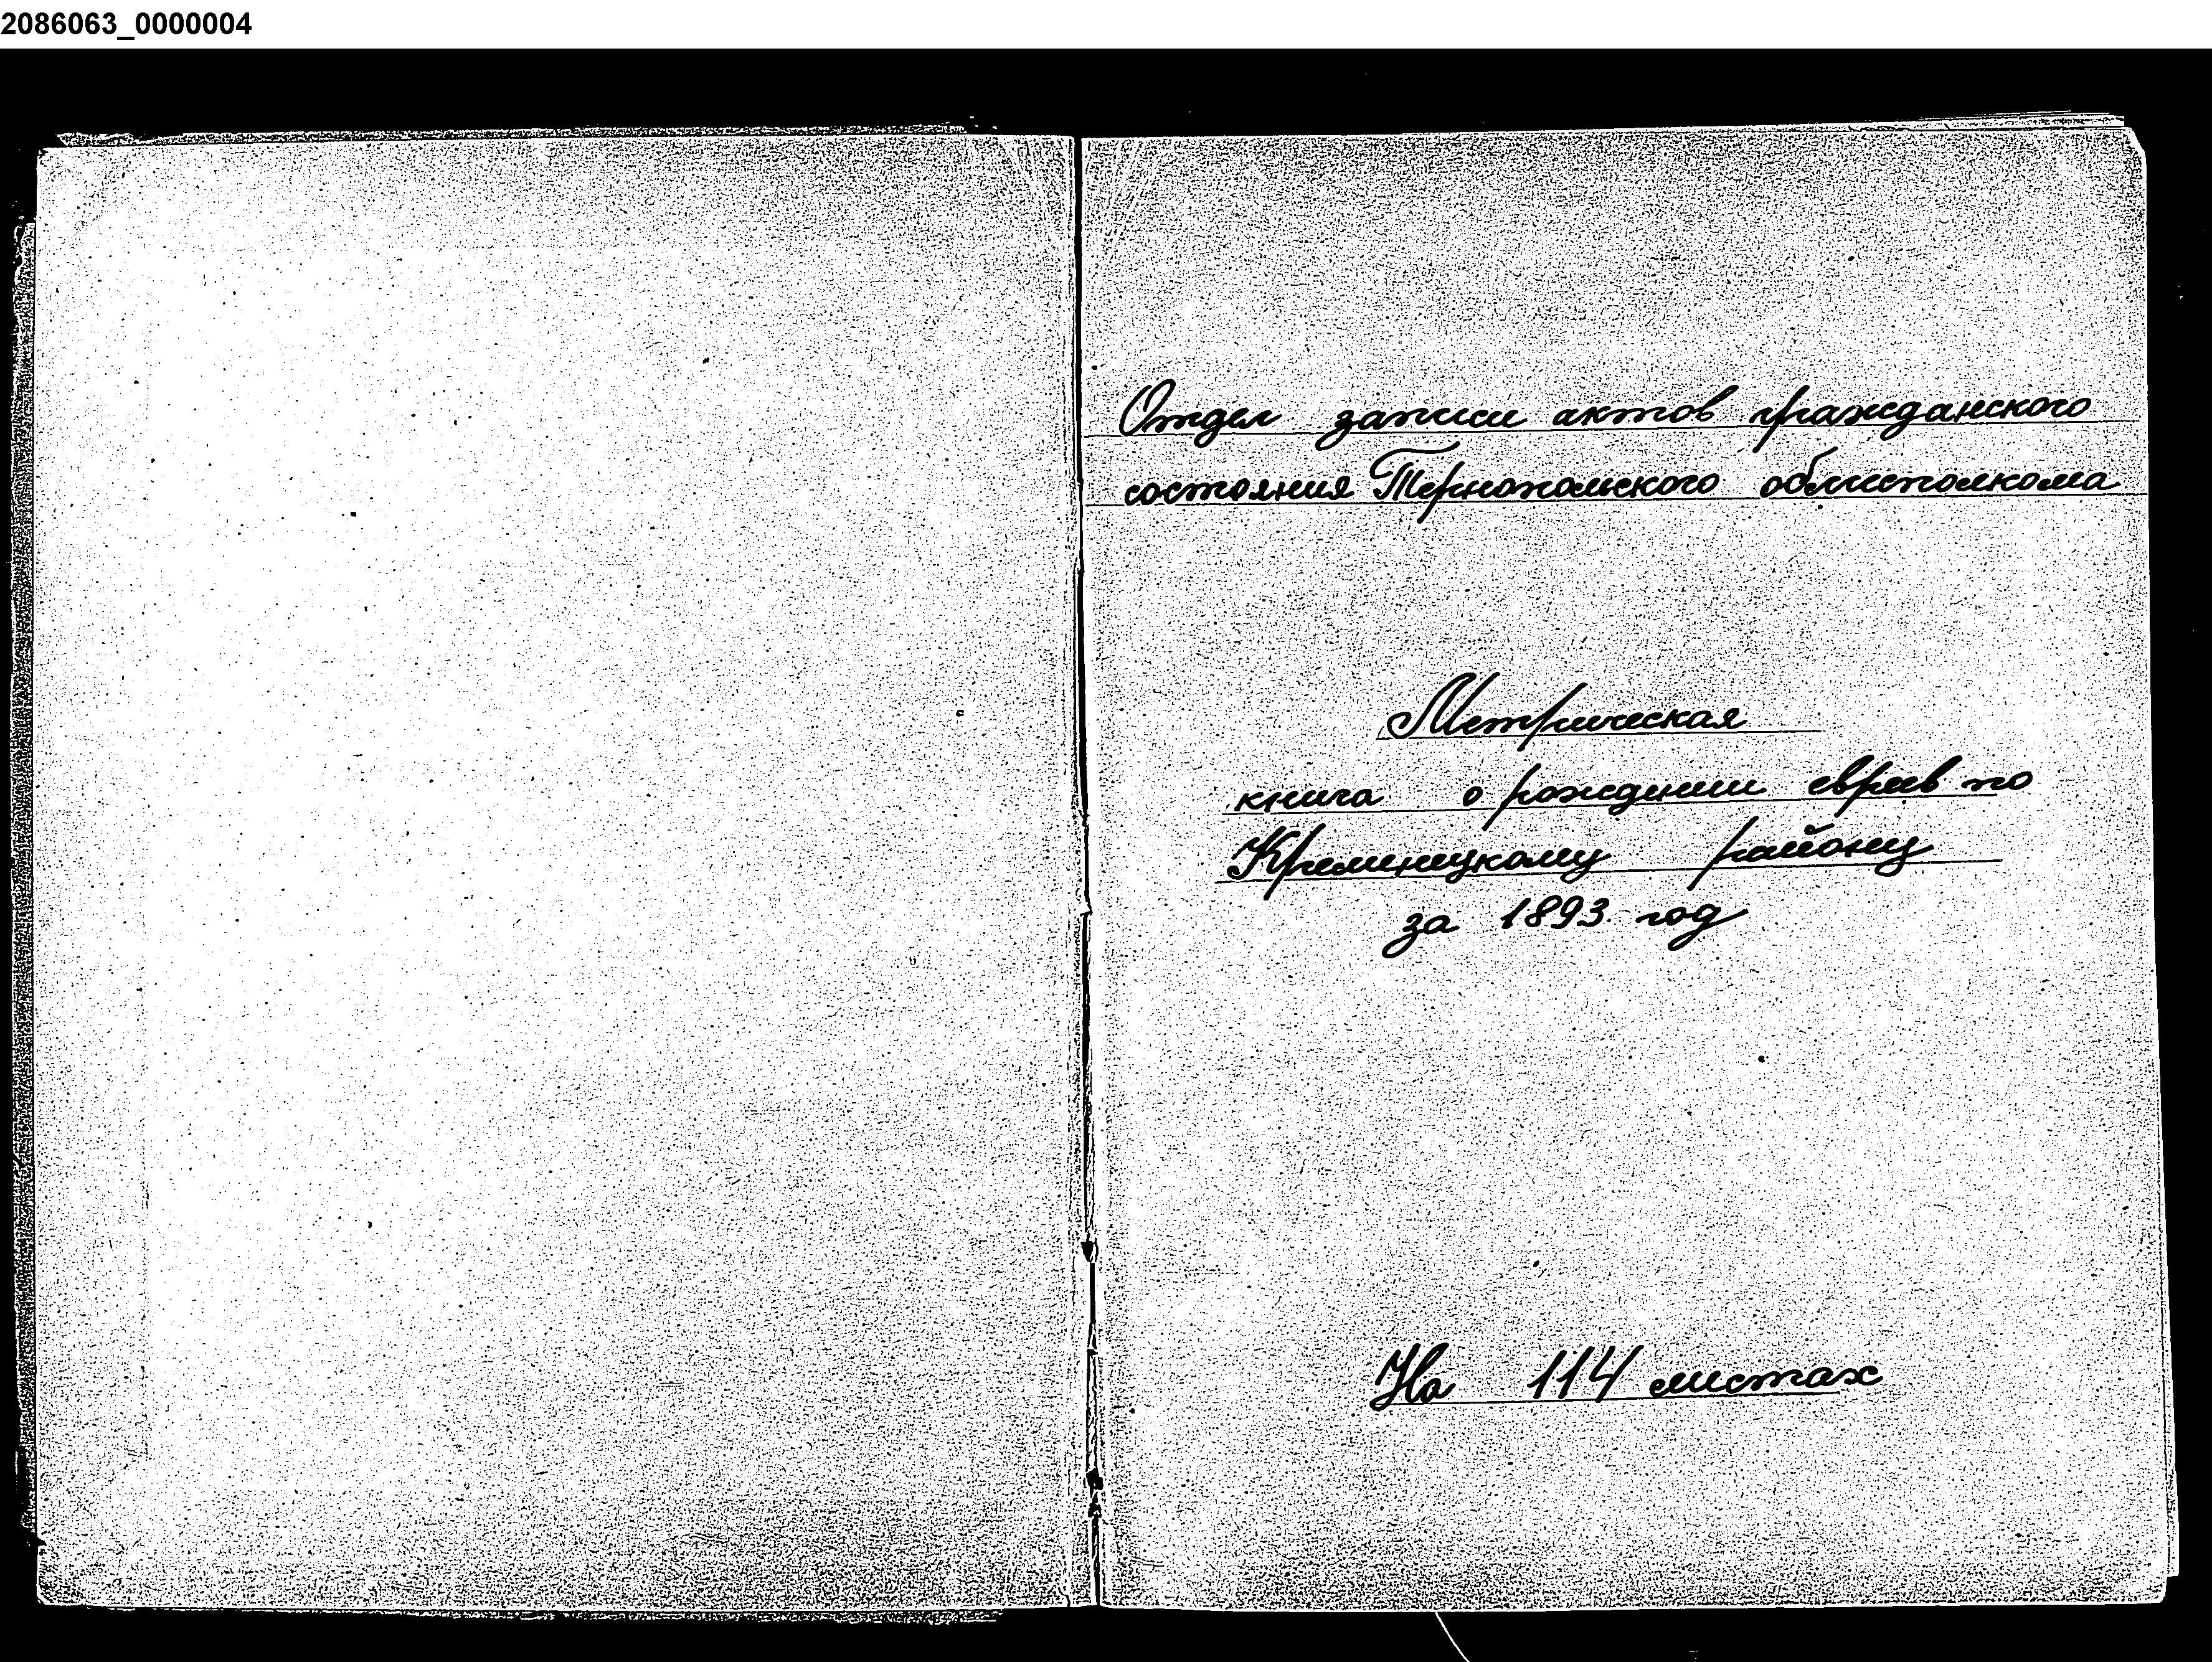 2086063_0000004
Отдел записи актов гражданского
состояния Тернопольского облисполкома
Метрическая
книга о рождении евреев по
Кременецкому району
за 1893 год
На 114 листах